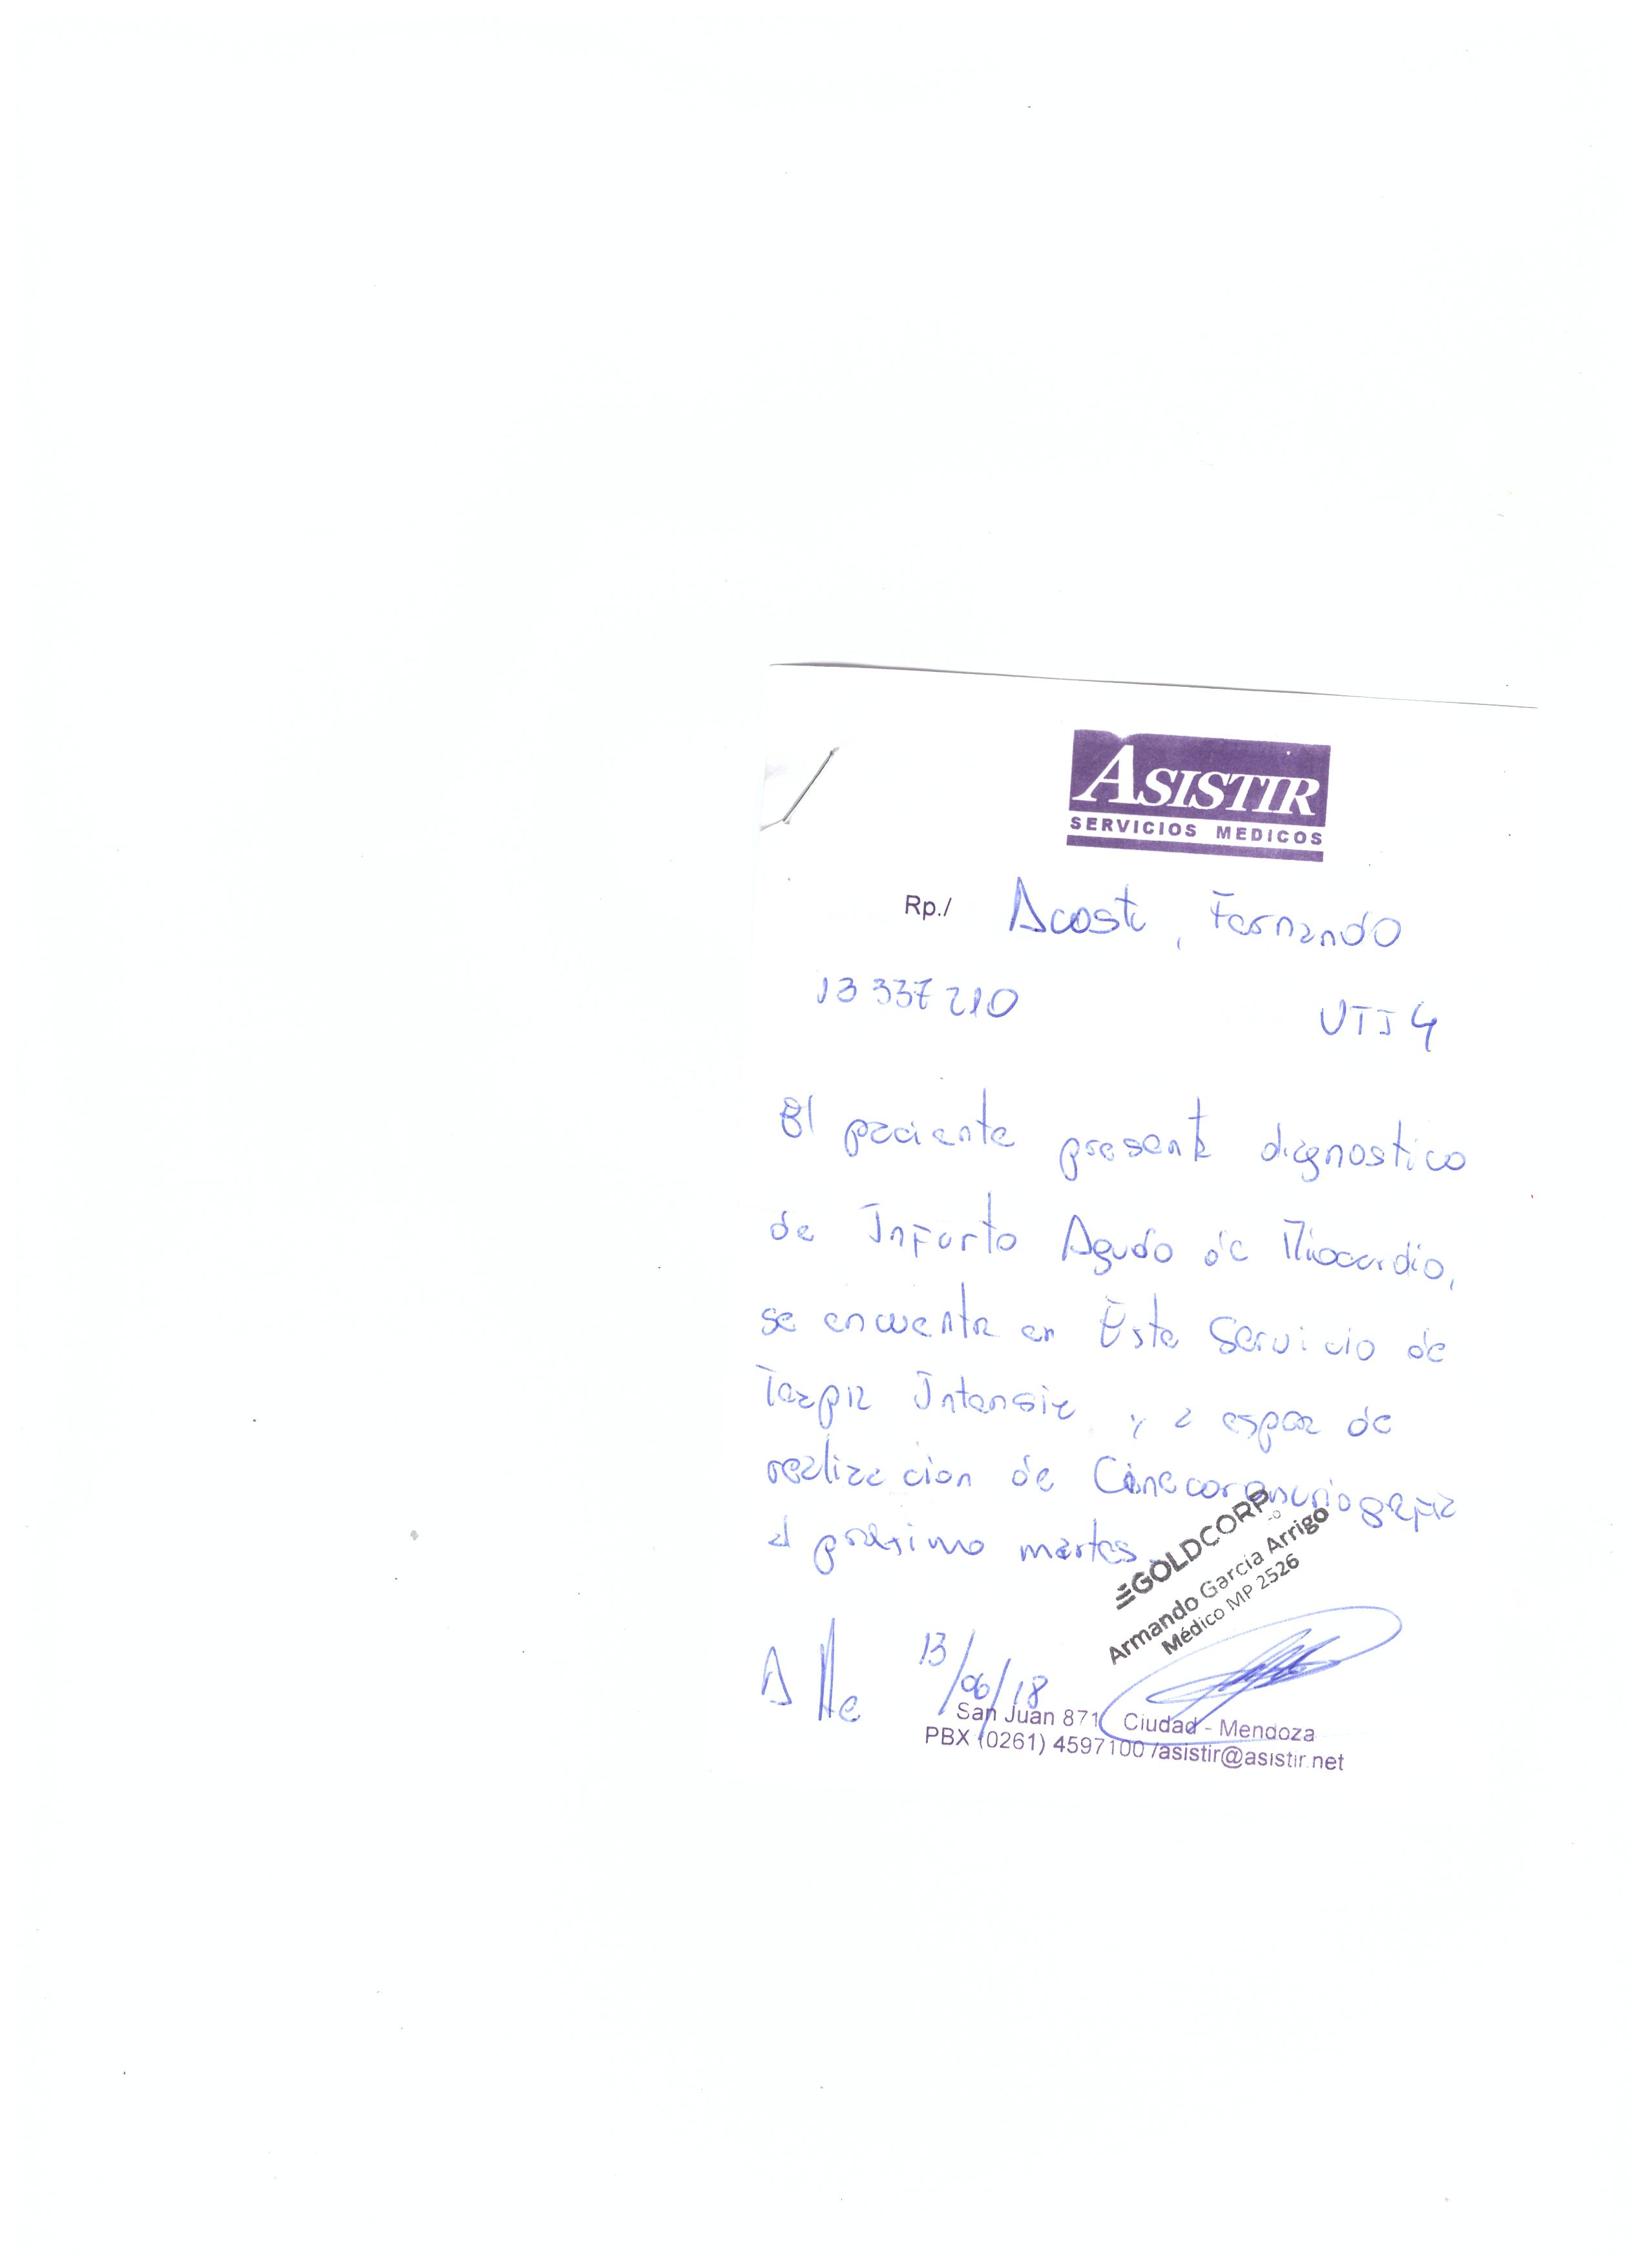 ASISTIR
SERVICIOS MEDICOS
Rp./ Acosta, Fernando
13 337 210 UTI 4
El paciente presenta diagnostico
de Infarto Agudo de Miocardio,
se encuentra en Este Servicio de
Terapia Intensiva y a espera de
realizacion de Cinecoronariografia
el próximo martes.
GOLDCORP
Armando García Arrigo
Médico MP 2526
13/06/18
San Juan 871 Ciudad - Mendoza
PBX (0261) 4597100 /asistir@asistir.net